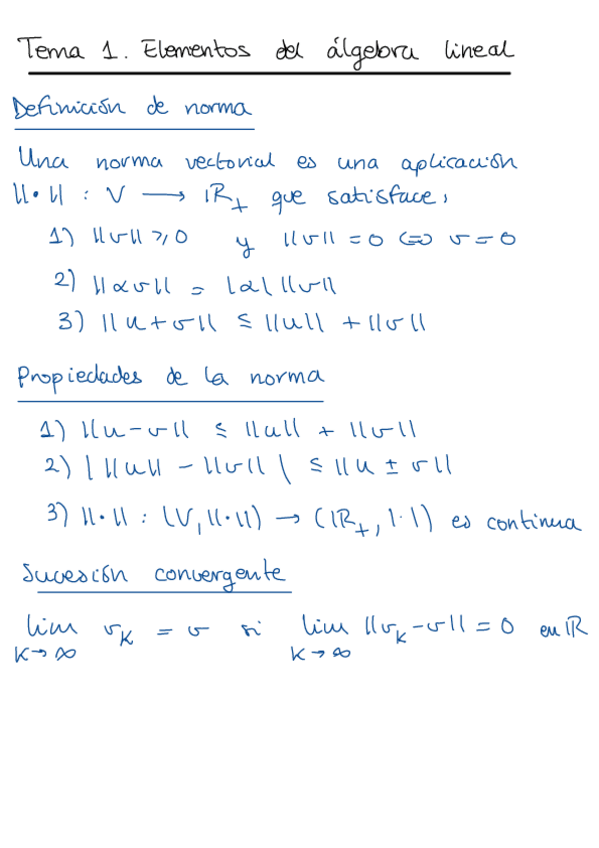 Tema 1. Elementos del álgebra lineal
Definición de norma
Una norma vectorial es una aplicación
||·|| : V → ℝ₊ que satisface:
1) ||v|| ≥ 0 y ||v|| = 0 ⇔ v = 0
2) ||αv|| = |α| ||v||
3) ||u + v|| ≤ ||u|| + ||v||
Propiedades de la norma
1) ||u - v|| ≤ ||u|| + ||v||
2) | ||u|| - ||v|| | ≤ ||u ± v||
3) ||·|| : (V, ||·||) → (ℝ₊, |·|) es continua
Sucesión convergente
lim v_k = v si lim ||v_k - v|| = 0 en ℝ
k→∞ k→∞